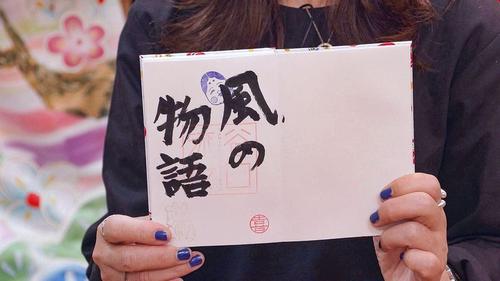 風の
物語